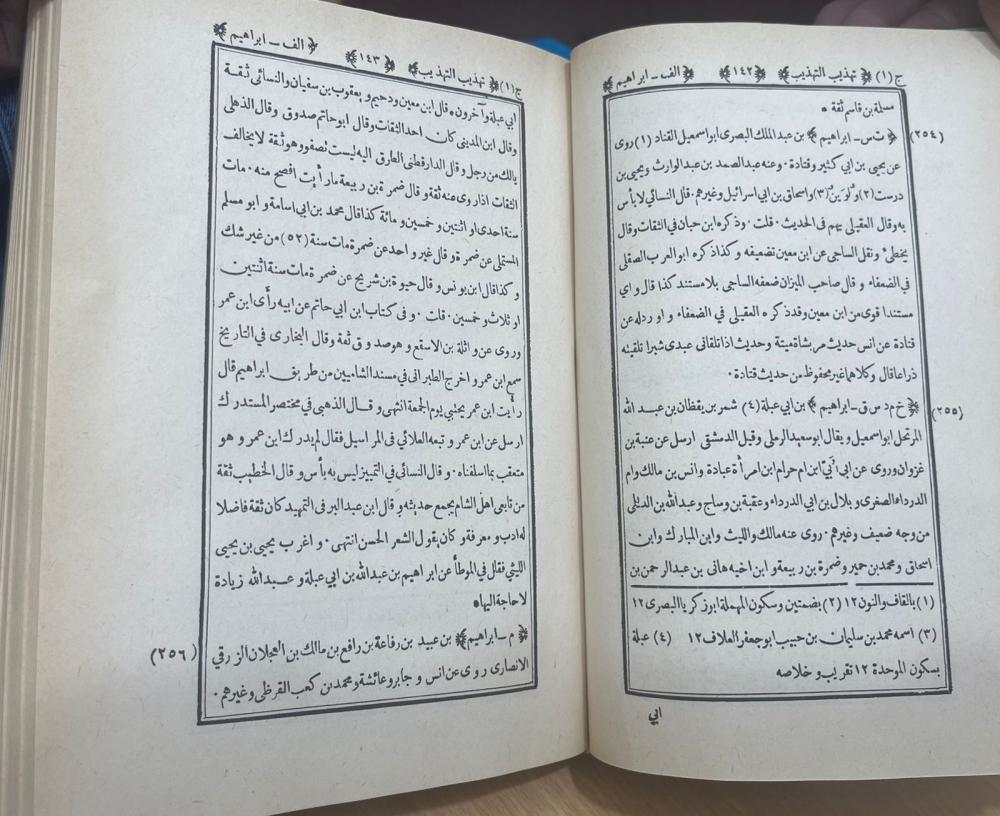 ج (١) ﴿ تهذيب التهذيب ﴾ ﴿ ١٤٢ ﴾ ﴿ الف ــ ابراهيم ﴾
مسلمة بن قاسم ثقة *
(٢٥٤) ﴿ ت س ــ ابراهيم ﴾ بن عبد الملك البصرى ابو اسمعيل القناد (١) روى
عن يحيى بن ابى كثير و قتادة . وعنه عبد الصمد بن عبد الوارث و يحيى بن
درست (٢) و لوين (٣) و اسحاق بن ابى اسرائيل وغيرهم . قال النسائى لا بأس
به وقال العقيلى يهم فى الحديث . قلت . وذكره ابن حبان فى الثقات وقال
يخطئ ونقل الساجى عن ابن معين تضعيفه و كذا ذكره ابو العرب الصقلى
فى الضعفاء و قال صاحب الميزان ضعفه الساجى بلا مستند كذا قال و اى
مستند اقوى من ابن معين وقد ذكره العقيلى فى الضعفاء و اورد له عن
قتادة عن انس حديث مر بشاة ميتة وحديث اذا تلقانى عبدى شبرا تلقيته
ذراعا قال وكلاهما غير محفوظ من حديث قتادة .
(٢٥٥) ﴿ خ م د س ق ــ ابراهيم ﴾ بن ابى عبلة (٤) شمر بن يقظان بن عبد الله
المرتحل ابو اسمعيل و يقال ابو سعيد الرملى وقيل الدمشقى . ارسل عن عتبة بن
غزوان وروى عن ابى اُبىّ ابن ام حرام ابن امرأة عبادة وانس بن مالك وام
الدرداء الصغرى و بلال بن ابى الدرداء وعقبة بن وساج وعبد الله بن الديلمى
من وجه ضعيف وغيرهم . روى عنه مالك والليث وابن المبارك وابن
اسحاق ومحمد بن حمير وضمرة بن ربيعة و ابن اخيه هانى بن عبد الرحمن بن
(١) بالقاف والنون ١٢ (٢) بضمتين وسكون المهملة ابو زكريا البصرى ١٢
(٣) اسمه محمد بن سليمان بن حبيب ابو جعفر العلاف ١٢ (٤) عبلة
بسكون الموحدة ١٢ تقريب و خلاصه
ابى
ج (١) ﴿ تهذيب التهذيب ﴾ ﴿ ١٤٣ ﴾ ﴿ الف ــ ابراهيم ﴾
ابى عبلة و آخرون . قال ابن معين ودحيم و يعقوب بن سفيان والنسائى ثقة
وقال ابن المدينى كان احد الثقات وقال ابو حاتم صدوق وقال الذهلى
يالك من رجل وقال الدارقطنى الطرق اليه ليست تصفو وهو ثقة لا يخالف
الثقات اذا روى عنه ثقة و قال ضمرة بن ربيعة ما رأيت افصح منه . مات
سنة احدى او اثنتين و خمسين و مائة كذا قال محمد بن ابى اسامة و ابو مسلم
المستملى عن ضمرة و قال غير واحد عن ضمرة مات سنة (٥٢) من غير شك
و كذا قال ابن يونس و قال حيوة بن شريح عن ضمرة مات سنة اثنتين
او ثلاث و خمسين . قلت . و فى كتاب ابن ابى حاتم عن ابيه رأى ابن عمر
وروى عن واثلة بن الاسقع و هو صدوق ثقة وقال البخارى فى التاريخ
سمع ابن عمر و اخرج الطبرانى فى مسند الشاميين من طريق ابراهيم قال
رأيت ابن عمر يحتبى يوم الجمعة انتهى و قال الذهبى فى مختصر المستدرك
ارسل عن ابن عمر و تبعه العلائى فى المراسيل فقال لم يدرك ابن عمر و هو
متعقب بما اسلفناه . و قال النسائى فى التمييز ليس به بأس و قال الخطيب ثقة
من تابعى اهل الشام يجمع حديثه و قال ابن عبد البر فى التمهيد كان ثقة فاضلا
له ادب و معرفة و كان يقول الشعر الحسن انتهى . و اغرب يحيى بن يحيى
الليثى فقال فى الموطأ عن ابراهيم بن عبد الله بن ابى عبلة و عبد الله زيادة
لا حاجة اليها *
﴿ م ــ ابراهيم ﴾ بن عبيد بن رفاعة بن رافع بن مالك بن العجلان الزرقى (٢٥٦)
الانصارى روى عن انس و جابر وعائشة ومحمد بن كعب القرظى وغيرهم .